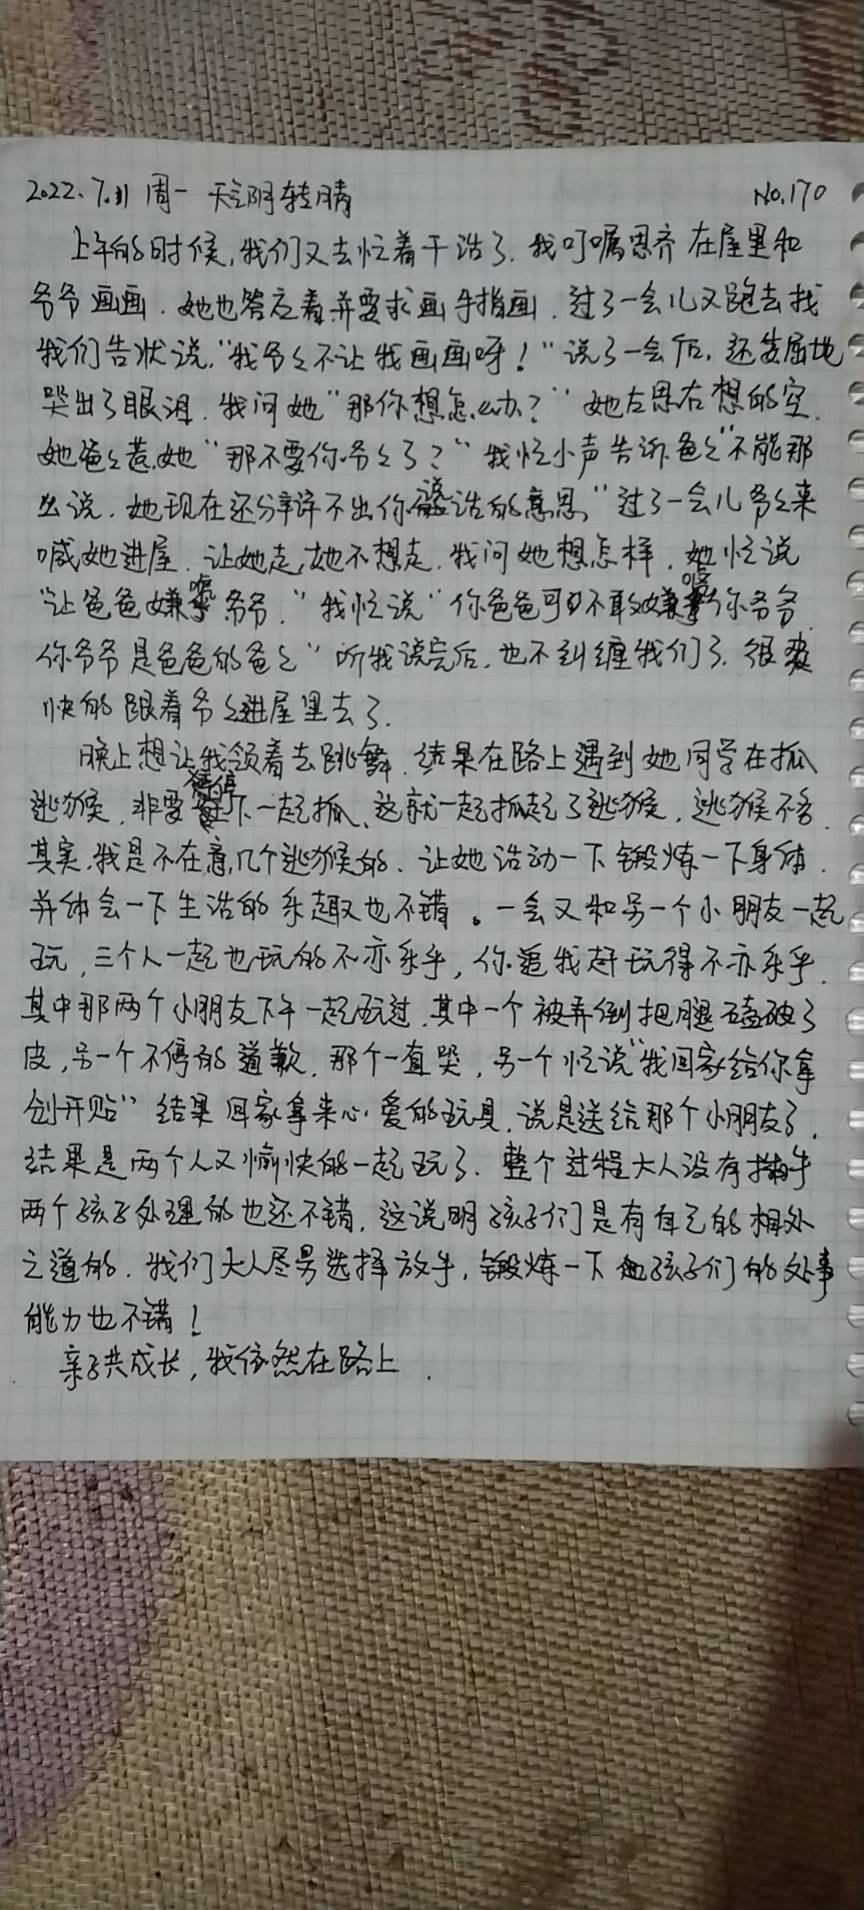 2022.7.11 周一 天空阴转晴 No.170
上午的时候,我们又去忙着干活了.我叮嘱思齐在屋里和
爷爷画画.她也答应着并要求画手指画.过了一会儿又跑去找
我们告状说,"我爷々不让我画画呀!"说了一会后,还委屈地
哭出了眼泪.我问她"那你想怎么办?"她左思右想的空.
她爸々惹她"那不要你爷々了?"我忙小声告诉爸々"不能那
么说.她现在还分辨不出你说话的意思"过了一会儿爷々来
喊她进屋.让她走,她不想走.我问她想怎样.她忙说
"让爸爸嫌爷爷."我忙说"你爸爸可不敢嫌你爷爷.
你爷爷是爸爸的爸々"听我说完后.也不纠缠我们了.很
快的跟着爷々进屋里去了.
晚上想让我领着去跳舞.结果在路上遇到她同学在抓
逃猴,非要停下一起抓、这就一起抓起了逃猴,逃猴不多.
其实,我是不在意几个逃猴的.让她活动一下锻炼一下身体.
并体会一下生活的乐趣也不错。一会又和另一个小朋友一起
玩,三个人一起也玩的不亦乐乎,你追我赶玩得不亦乐乎.
其中那两个小朋友下午一起玩过.其中一个被弄倒把腿磕破了
皮,另一个不停的道歉.那个一直哭,另一个忙说"我回家给你拿
创开贴"结果回家拿来心爱的玩具.说是送给那个小朋友了.
结果是两个人又愉快的一起玩了.整个过程大人没有插手
两个孩子处理的也还不错.这说明孩子们是有自己的相处
之道的.我们大人尽男选择放手,锻炼一下孩子们的处事
能力也不错!
亲子共成长,我依然在路上.